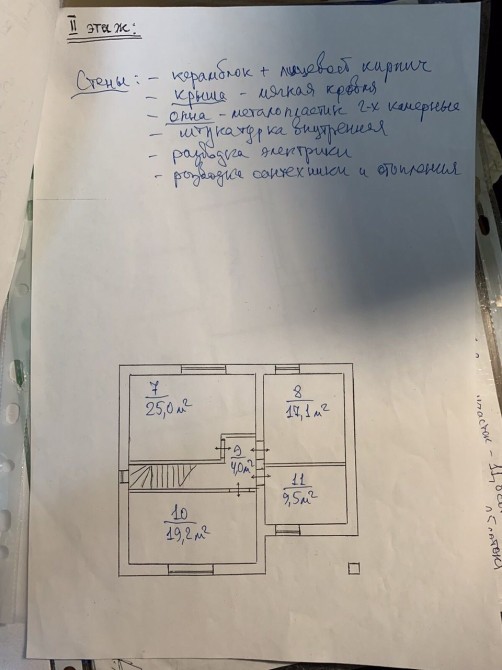 II этаж:
Стены: - керамблок + лицевой кирпич
- крыша - мягкая кровля
- окна - металопластик 2-х камерные
- штукатурка внутренняя
- разводка электрики
- разводка сантехники и отопления
7
25,0 м²
8
17,1 м²
9
4,0 м²
11
9,5 м²
10
19,2 м²